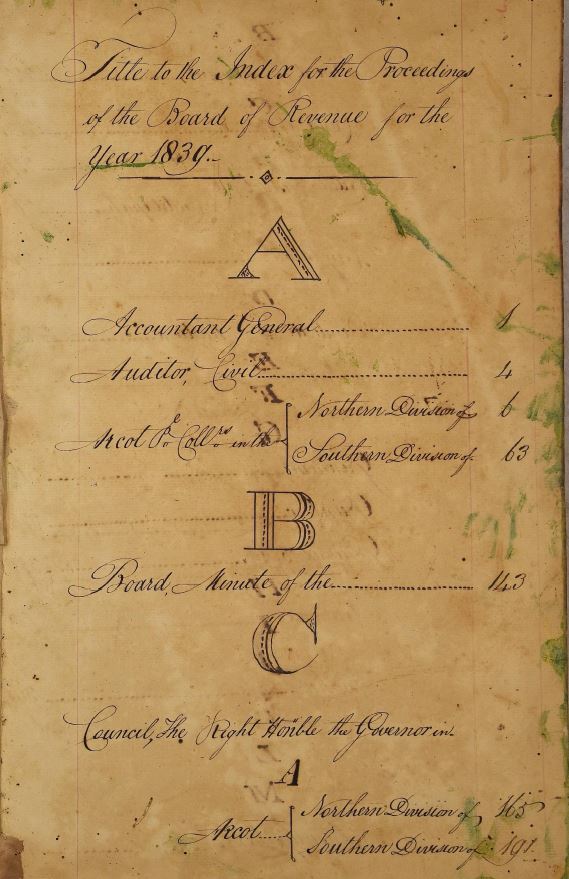 Title to the Index for the Proceedings
of the Board of Revenue for the
Year 1839.
A
Accountant General 1
Auditor, Civil 4
Arcot Pl. Collrs in the
Northern Division of 6
Southern Division of 63
B
Board, Minute of the 143
C
Council, The Right Honble the Governor in
A
Arcot
Northern Division of 165
Southern Division of 191